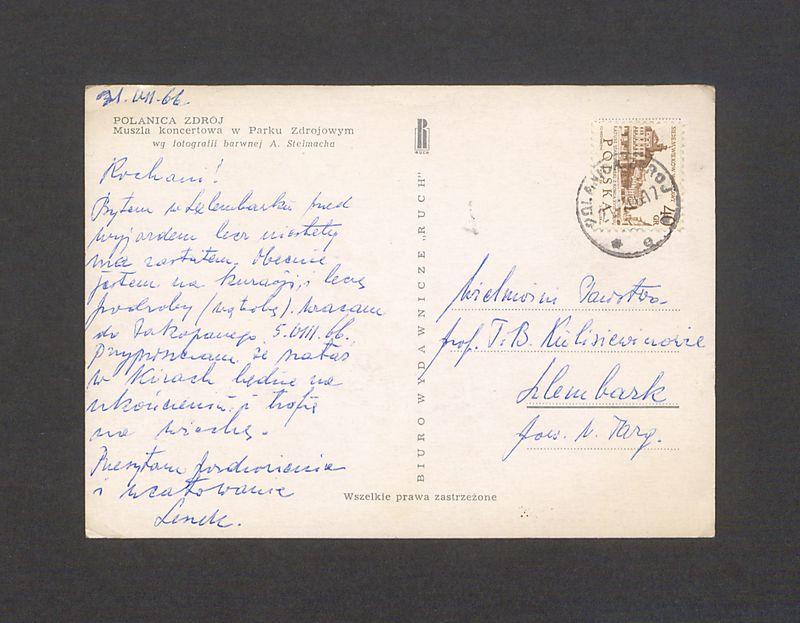 31.VII.66.
POLANICA ZDRÓJ
Muszla koncertowa w Parku Zdrojowym
wg fotografii barwnej A. Stelmacha
Kochani!
Byłem w Szlembarku przed
wyjazdem lecz niestety
nie zastałem. Obecnie
jestem na kuracji i leczę
podroby (wątobę). Wracam
do Zakopanego 5.VIII.66.
Przypuszczam że szałas
w Kirach będzie na
ukończeniu i trafię
na wiechę.
Przesyłam pozdrowienia
i ucałowania
Leszek.
RUCH
BIURO WYDAWNICZE „RUCH"
Wszelkie prawa zastrzeżone
POLSKA
40 GR
POLANICA ZDRÓJ
Wielmożni Państwo
prof. T.B. Kulisiewiczowie
Szlembark
pow. N. Targ.